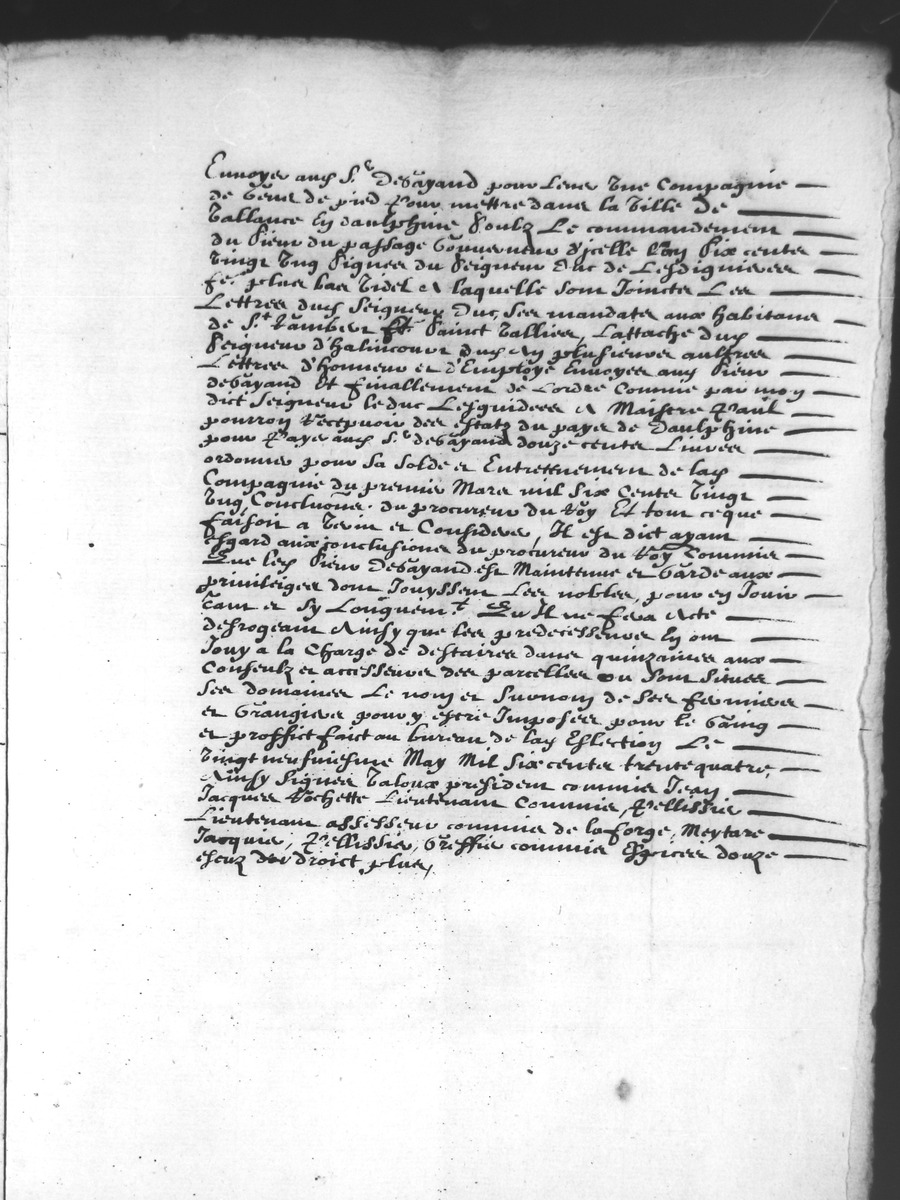 Envoyée aud S.r deBayand pour lever une Compagnie
de gens de pied pour mettre dans la Ville de
Vallance En daulphiné soubz Le commandement
du sieur du passage Gouverneur d'jcelle L'an six centz
vingt ung signée du seigneur duc de Lesdiguieres
Et plus bas Videl A laquelle sont Joinctes Les
Lettres dud seigneur duc, ses mandatz aux habitans
de S.t Rambert Et sainct Vallier, Lattache dud
seigneur d'halincourt dud An plusieures aultres
Lettres d'honneur et d'Employé Envoyées aud sieur
deBayand Et finallement de Lordre Commis par mon
dict seigneur le duc Lesguideres A Maistre Paul
pourroy Recepveur des estatz du pays de Daulphiné
pour Payer aud S.r deBayand douze centz Livres
ordonnés pour sa solde et Entretenement de lad
Compagnie du premier Mars mil six Centz vingt
ung Concluōns. du procureur du Roy Et tout ce que
faisoit a Veoir et Considerer, Il est dict ayant
Esgard aux conclusions du procureur du Roy Commis
Que led sieur Debayand est Maintenu et Gardé aux
privileiges dont Jouyssent Les nobles, pour en Jouir
Tant et sy Longuem.t Qu'Il ne fera Acte
desrogeant Ainsy que ses predecesseurs En ont
Jouy a la Charge de destairer dans quinzaine aux
Conseulz et assesseurs des parcelles ou sont situés
ses domaines Le nom et surnom de ses fermiers
et Grangiers pour y estre Imposés pour le Gaing
et proffict faict au bureau de lad Eslection Le
vingt neufviesme May Mil six centz trente quatre,
Ainsy signés Valoux president commis Jean
Jacques Rochette Lieutenant Commis, Pellissier
Lieutenant assesseur commis de laforge, Meytare
Jacquier, Pellissier, Greffier commis Espices douze
escuz des droict plus,